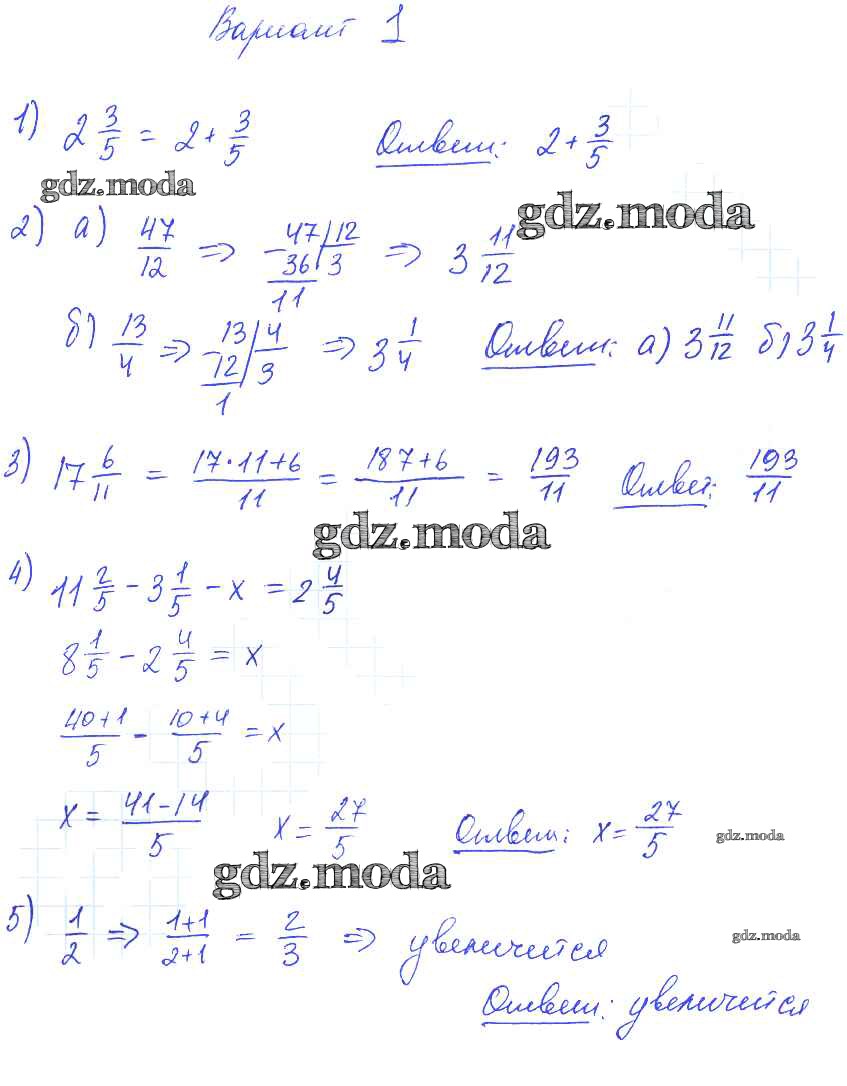 Вариант 1
1) 2 3/5 = 2 + 3/5 Ответ: 2 + 3/5
gdz.moda
gdz.moda
2) а) 47/12 ⇒ 47 | 12 ⇒ 3 11/12
- 36 | 3
11
б) 13/4 ⇒ 13 | 4 ⇒ 3 1/4 Ответ: а) 3 11/12 б) 3 1/4
- 12 | 3
1
3) 17 6/11 = (17·11+6)/11 = (187+6)/11 = 193/11 Ответ: 193/11
gdz.moda
4) 11 2/5 - 3 1/5 - x = 2 4/5
8 1/5 - 2 4/5 = x
(40+1)/5 - (10+4)/5 = x
x = (41-14)/5 x = 27/5 Ответ: x = 27/5 gdz.moda
gdz.moda
5) 1/2 ⇒ (1+1)/(2+1) = 2/3 ⇒ увеличится gdz.moda
Ответ: увеличится